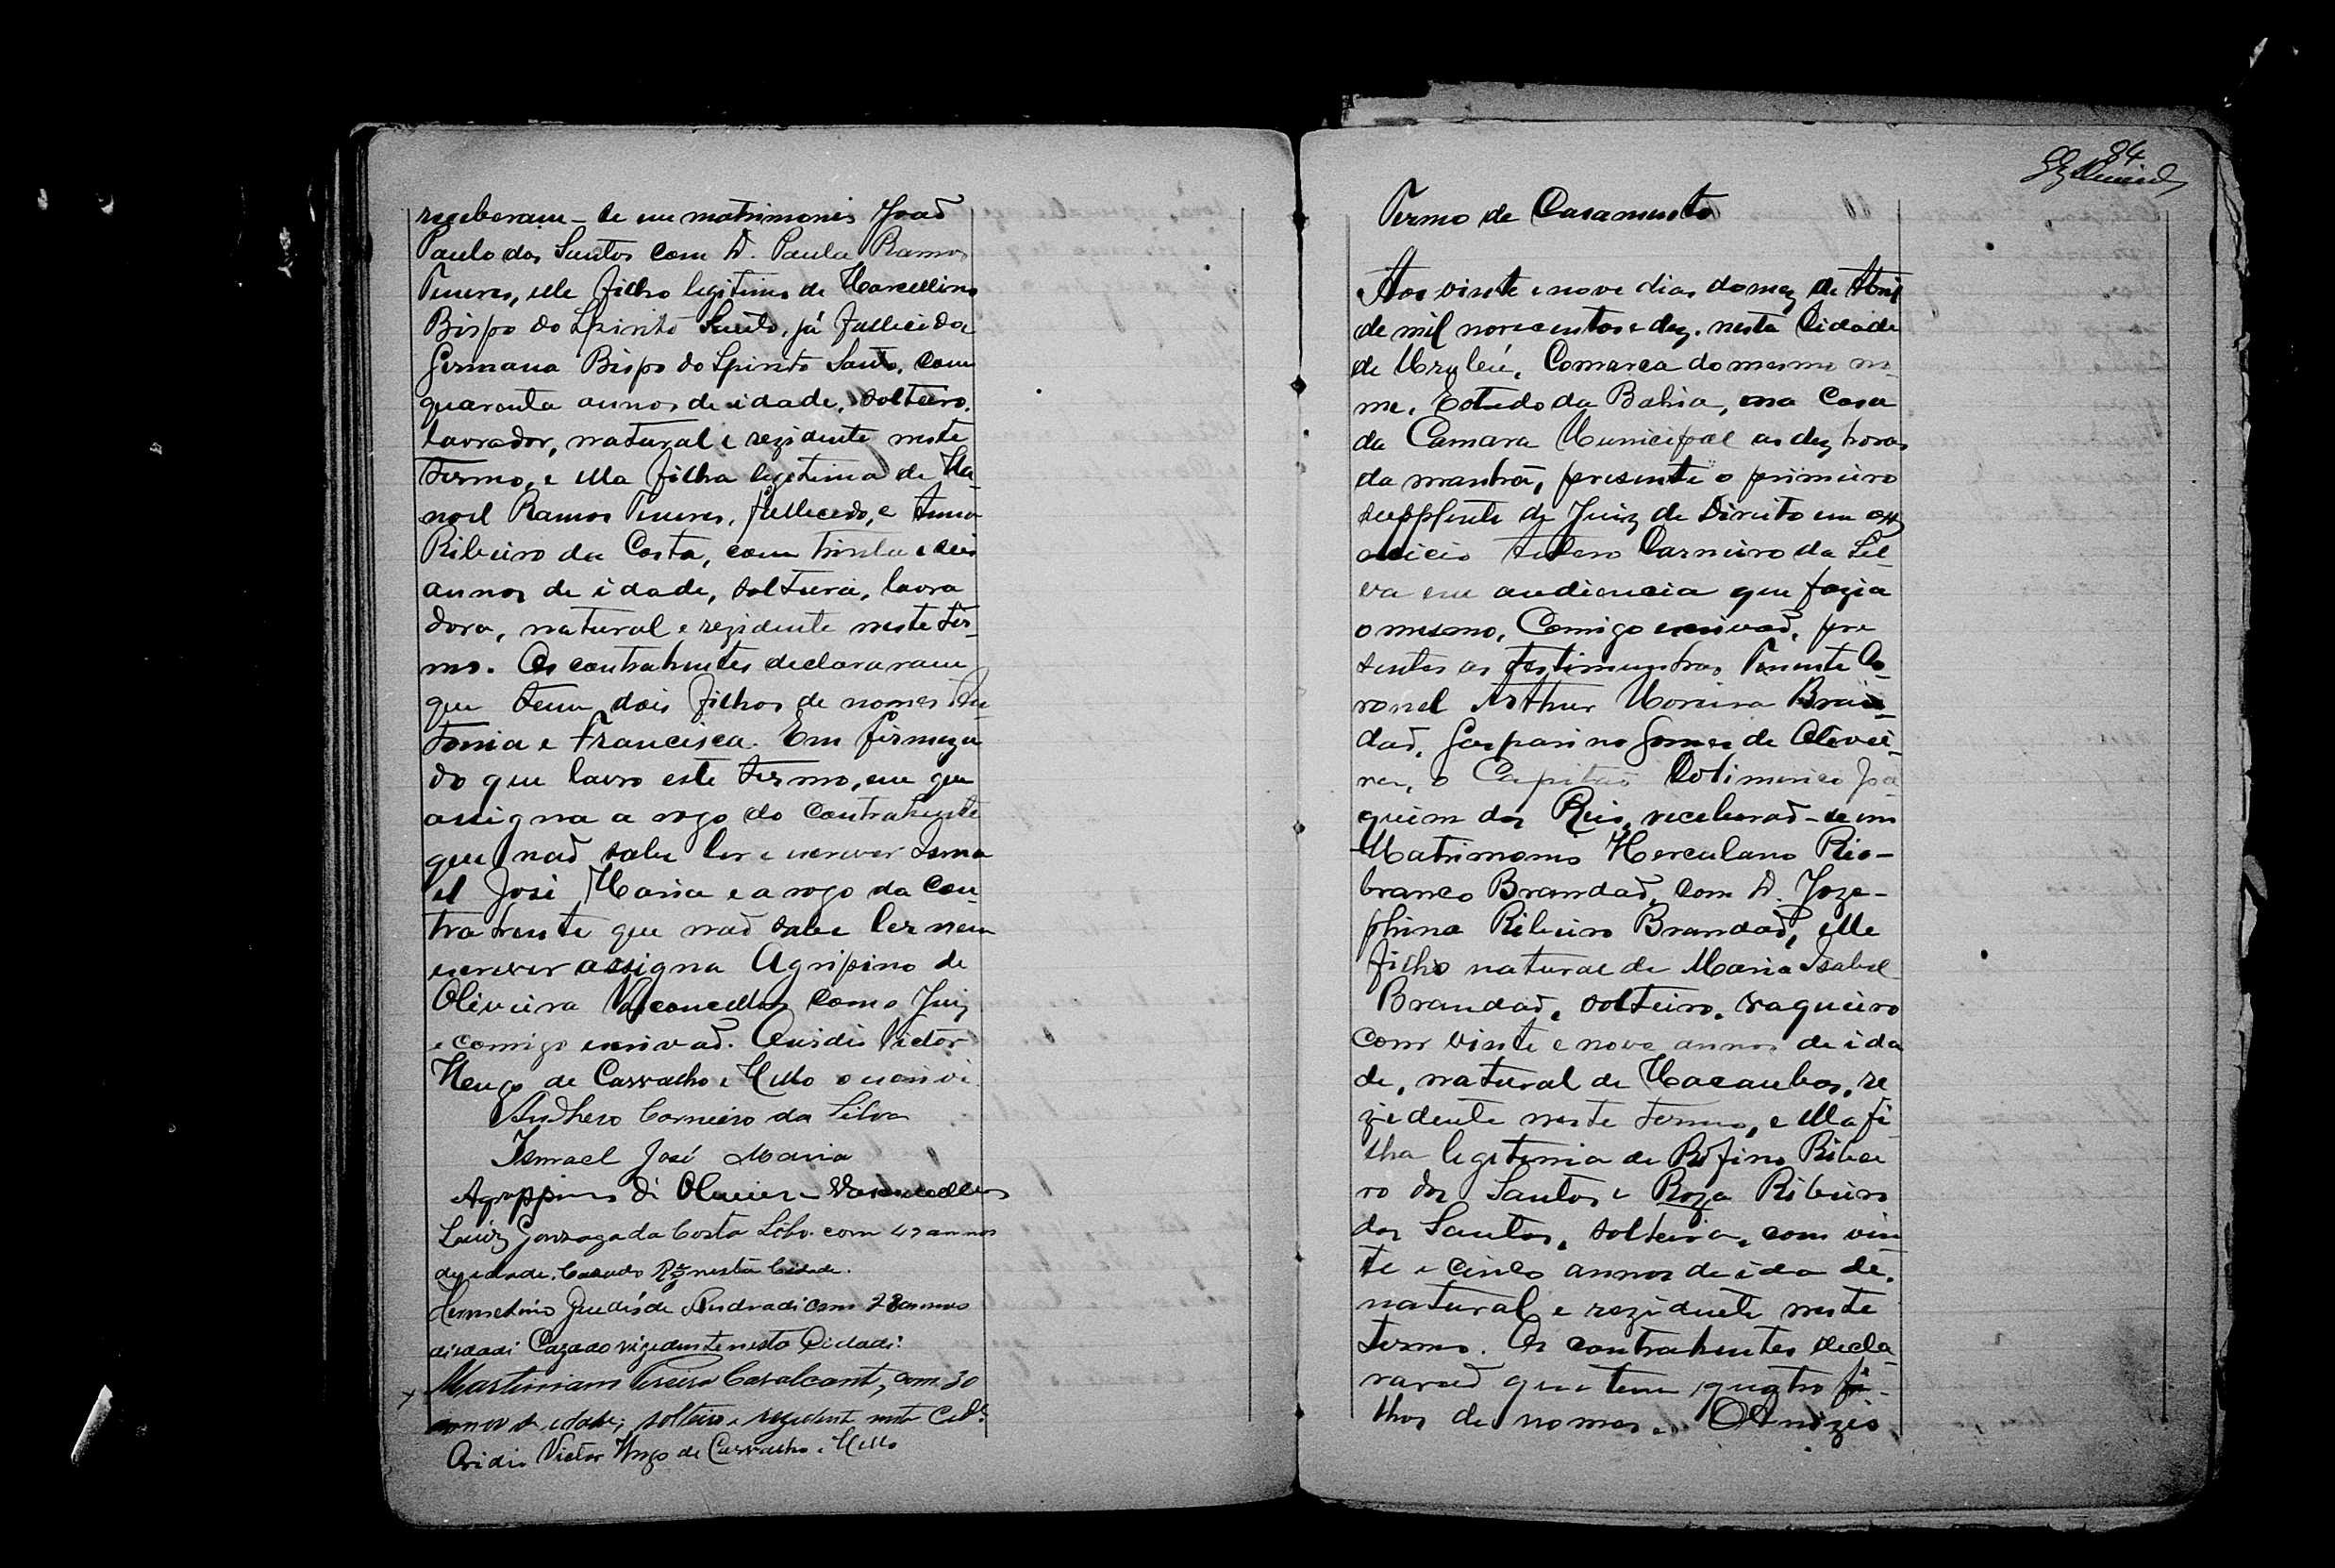 receberam-se em matrimonio Joaõ
Paulo dos Santos com D. Paula Ramos
elle filho legitimo de Marcellino
Bispo do Spirito Santo, já fallecido e
Germana Bispo do Spirito Santo, com
quarenta annos de idade, solteiro,
lavrador, natural e rezidente neste
termo, e ella filha legitima de Ma-
noel Ramos fallecido, e Anna
Ribeiro da Costa, com trinta e seis
annos de idade, solteira, lavra
dora, natural e rezidente neste ter-
mo. Os contrahentes declararam
que tem dois filhos de nomes An-
tonia e Francisca. Em firmeza
do que lavro este termo, em que
assigna a rogo do contrahente
que naõ sabe ler e escrever Isma
el José Maria e a rogo da con-
trahente que naõ sabe ler nem
escrever assigna Agripino de
Oliveira Vasconcellos como Juiz
e comigo escrivaõ. Victor
Hugo de Carvalho e Mello o escrivi.
Anthero Carneiro da Silva
Ismael José Maria
Agrippino di Oliveira Vasconcellos
Luiz Gonzaga da Costa Lôbo com 47 annos
de edade, Casado Rez nesta Cidade.
Guedis de Andradi com 28 annos
didadi Cazado rizidente nesta Cidadi.
Martiniano Pereira Cavalcant, com 30
annos de edade, solteiro e rezidente nesta Cide.
Victor Hugo de Carvalho e Mello
84
Termo de Casamento
Aos vinte e nove dias do mez de Abril
de mil novecentos e dez, nesta Cidade
de Comarca do mesmo no-
me, Estado da Bahia, na Casa
da Camara Municipal as dez horas
da manhã, presente o primeiro
supplente de Juiz de Direito em ex
ercicio Antero Carneiro da Sil-
va em audiencia que fazia
o mesmo, Comigo escrivaõ, pre
sentes as testimunhas Tenente Co-
ronel Arthur Moreira Bran-
daõ, Gasparino Gomes de Olivei-
ra, o Capitaõ Joa-
quim dos Reis, receberaõ-se em
Matrimonio Herculano Rio-
branco Brandaõ, com D. Joze-
phina Ribeiro Brandaõ, elle
filho natural de Maria Isabel
Brandaõ, solteiro, vaqueiro
com vinte e nove annos de ida
de, natural de Macaubas, re
zidente neste termo, e ella fi-
lha legitimia de Rofino Ribei
ro dos Santos e Roza Ribeiro
dos Santos, solteira, com vin
te e cinco annos de ida de,
natural e rezidente neste
termo. Os contrahentes decla-
raraõ que tem quatro fi-
lhos de nomes